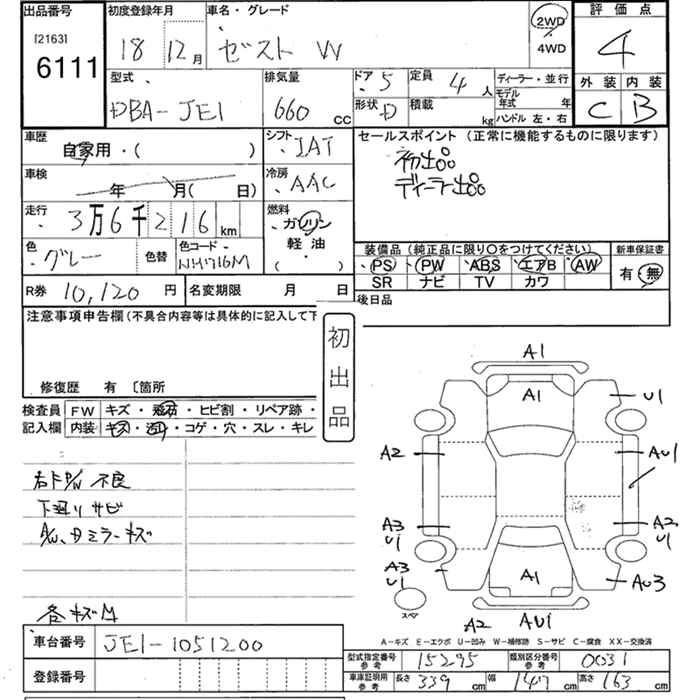 出品番号 初度登録年月 車名・グレード 評価点
[2163] 6111 18 12月 ゼスト W 2WD 4WD 4
型式 排気量 ドア 5 定員 4人 ディーラー・並行 外装 内装
DBA-JE1 660 CC 形状 D 積載 kg モデル年式 年 C B
ハンドル 左・右
車歴 自家用・( ) シフト IAT セールスポイント (正常に機能するものに限ります)
車検 年 月( 日) 冷房 AAC 初出品
ディーラー出品
走行 3万6千216km 燃料 ガソリン
軽油
( )
色 グレー 色替 色コード NH716M
装備品 (純正品に限り〇をつけてください) 新車保証書
PS PW ABS エアB AW 有・無
SR ナビ TV カワ
R券 10,120円 名変期限 月 日 後日品
注意事項申告欄(不具合内容等は具体的に記入して下
初出品
修復歴 有 〔箇所
検査員 FW キズ・飛石・ヒビ割・リペア跡・
記入欄 内装 キズ・汚れ・コゲ・穴・スレ・キレ
右ドP/W 不良
下廻リサビ
A/W、ダミラーキズ
各キズ凹
A1
A1
U1
A2
AU1
A3 U1
A2 U1
A3 U1
スペア
A1
AU3
A2 AU1
A-キズ E-エクボ U-凹み W-補修跡 S-サビ C-腐食 XX-交換済
車台番号 JE1-1051200
登録番号
型式指定番号 参考 15295 類別区分番号 参考 0031
車庫証明用 参考 長さ 339cm 幅 147cm 高さ 163cm